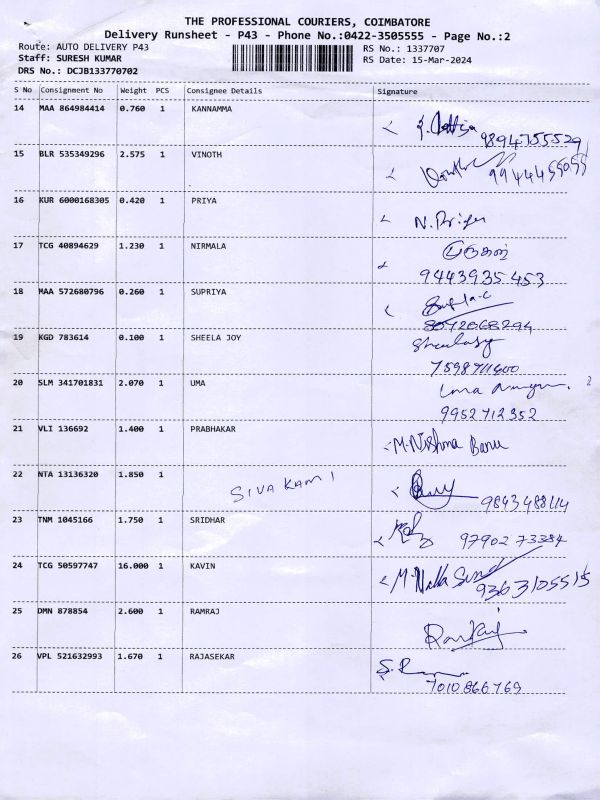 THE PROFESSIONAL COURIERS, COIMBATORE
Delivery Runsheet - P43 - Phone No.:0422-3505555 - Page No.:2
Route: AUTO DELIVERY P43 RS No.: 1337707
Staff: SURESH KUMAR RS Date: 15-Mar-2024
DRS No.: DCJB133770702
S No Consignment No Weight PCS Consignee Details Signature
14 MAA 864984414 0.760 1 KANNAMMA
9894755529
15 BLR 535349296 2.575 1 VINOTH
16 KUR 6000168305 0.420 1 PRIYA
N. Priya
17 TCG 40894629 1.230 1 NIRMALA
9443935453
18 MAA 572680796 0.260 1 SUPRIYA
19 KGD 783614 0.100 1 SHEELA JOY
20 SLM 341701831 2.070 1 UMA
9952712352
21 VLI 136692 1.400 1 PRABHAKAR
M. Nishma Banu
22 NTA 13136320 1.850 1 SIVAKAMI
9843488114
23 TNM 1045166 1.750 1 SRIDHAR
9790273384
24 TCG 50597747 16.000 1 KAVIN
9363105515
25 DMN 878854 2.600 1 RAMRAJ
26 VPL 521632993 1.670 1 RAJASEKAR
7010866769